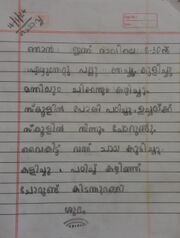 ഞാൻ ഇന്ന് രാവിലെ 6-30ൽ
എഴുന്നേറ്റു പല്ലു തേച്ചു കുളിച്ചു
കുടിച്ചു
സ്കൂളിൽ പോയി പഠിച്ചു ഉച്ചയ്ക്ക്
സ്കൂളിൽ നിന്നും ചോറുണ്ടു
വൈകിട്ട് വന്ന് ചായ കുടിച്ചു
കളിച്ചു പഠിച്ച് കഴിഞ്ഞ്
ചോറുണ്ട് കിടന്നുറങ്ങി
ശുഭം